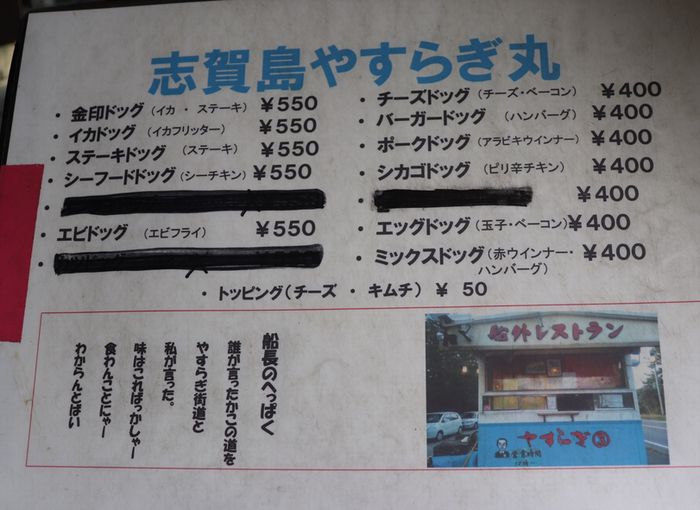 志賀島やすらぎ丸
・金印ドッグ(イカ・ステーキ) ¥550
・イカドッグ (イカフリッター) ¥550
・ステーキドッグ (ステーキ) ¥550
・シーフードドッグ(シーチキン) ¥550
・エビドッグ (エビフライ) ¥550
・チーズドッグ(チーズ・ベーコン) ¥400
・バーガードッグ (ハンバーグ) ¥400
・ポークドッグ(アラビキウインナー) ¥400
・シカゴドッグ (ピリ辛チキン) ¥400
・ ¥400
・エッグドッグ(玉子・ベーコン) ¥400
・ミックスドッグ(赤ウインナー・ハンバーグ) ¥400
・トッピング(チーズ・キムチ) ¥ 50
船長のへっぱく
誰が言ったかこの道を
やすらぎ街道と
私が言った。
味はこればっかしゃー
食わんことにゃー
わからんとばい
船外レストラン
やすらぎ③
営業時間